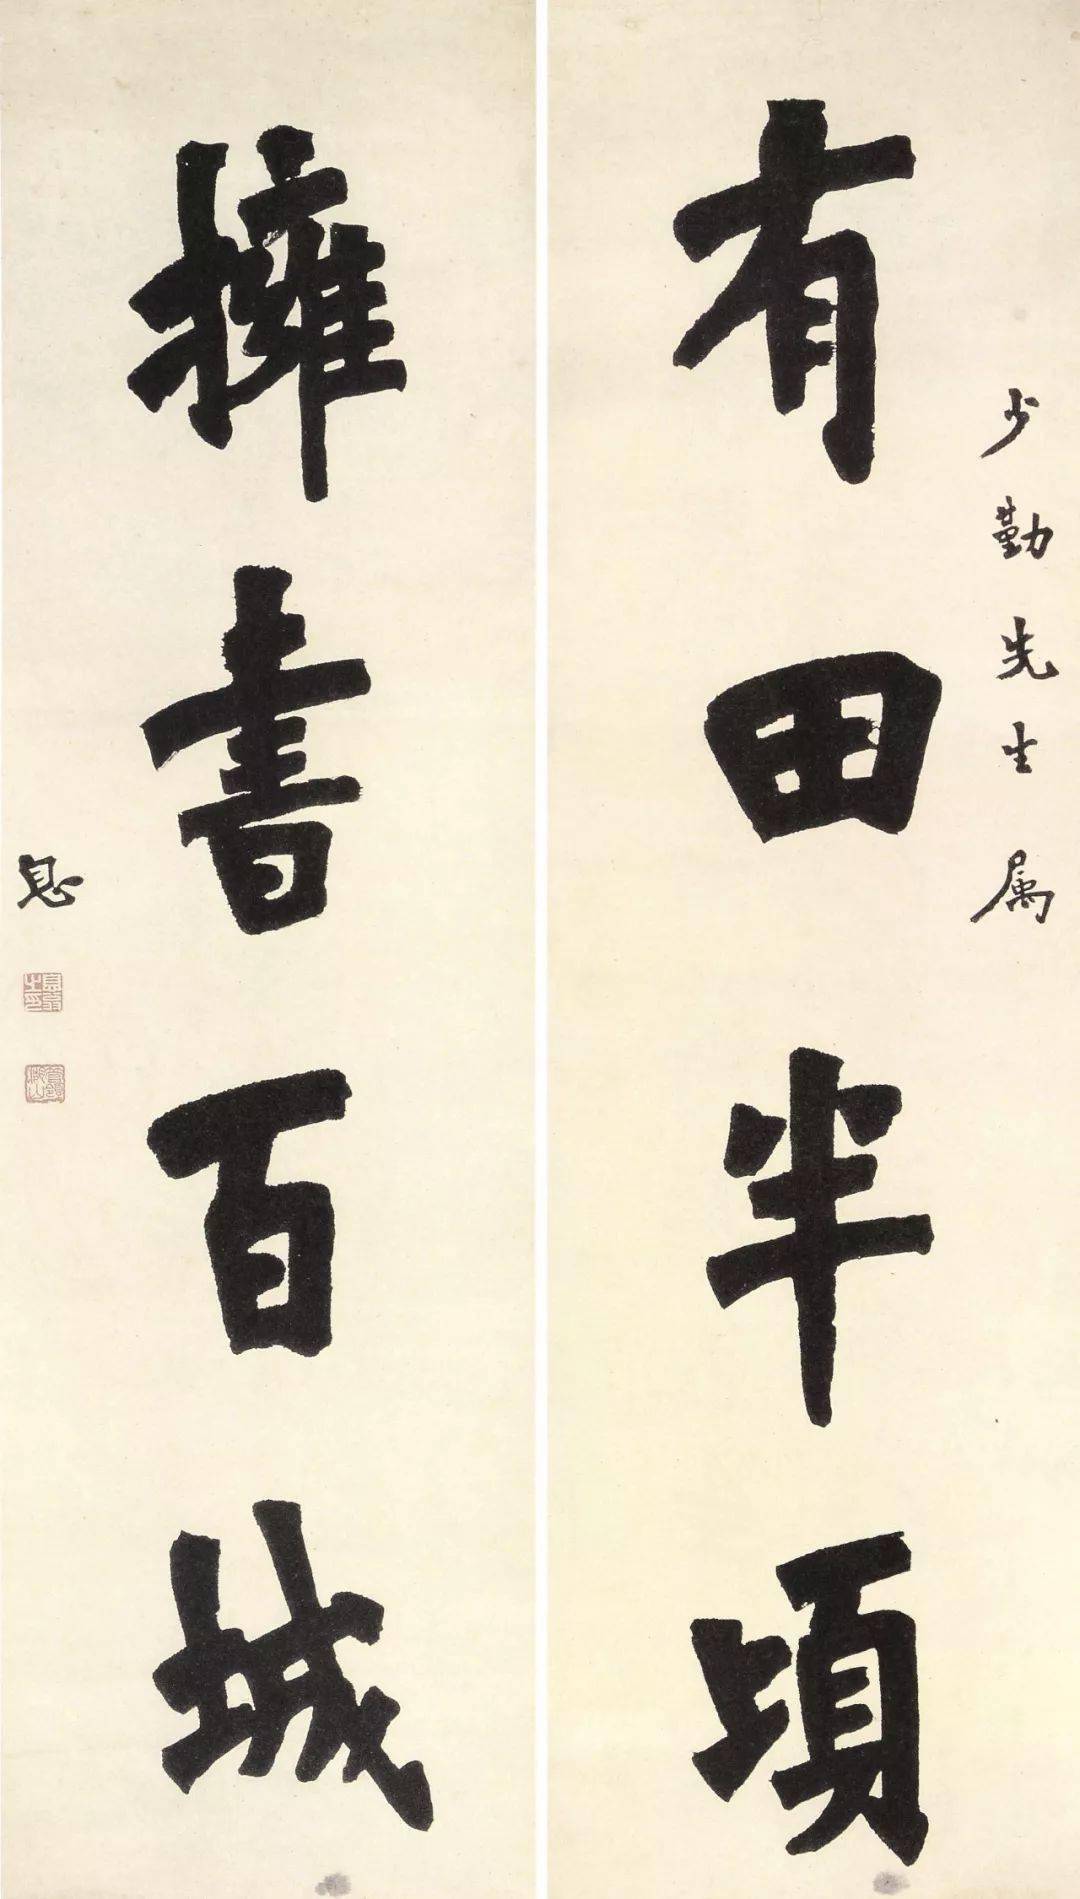 少勤先生属
有田半頃
擁書百城
息